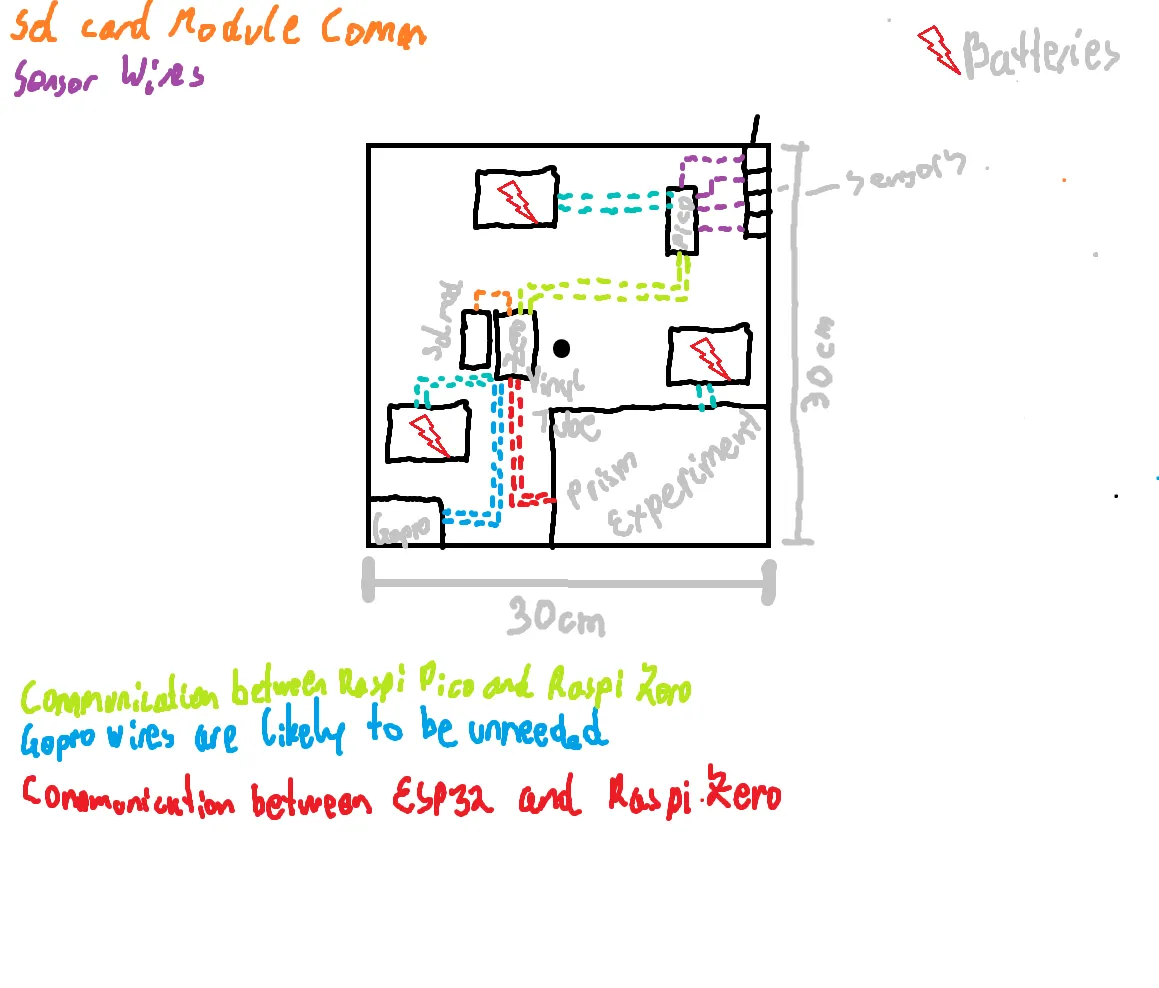 Sd card Module Comm
Sensor Wires
Batteries
Sensors
Pico
Sd mod
Zero
Vinyl
Tube
30cm
Prism
Experiment
Gopro
30cm
Communication between Raspi Pico and Raspi Zero
Gopro wires are likely to be unneeded
Communication between ESP32 and Raspi Zero